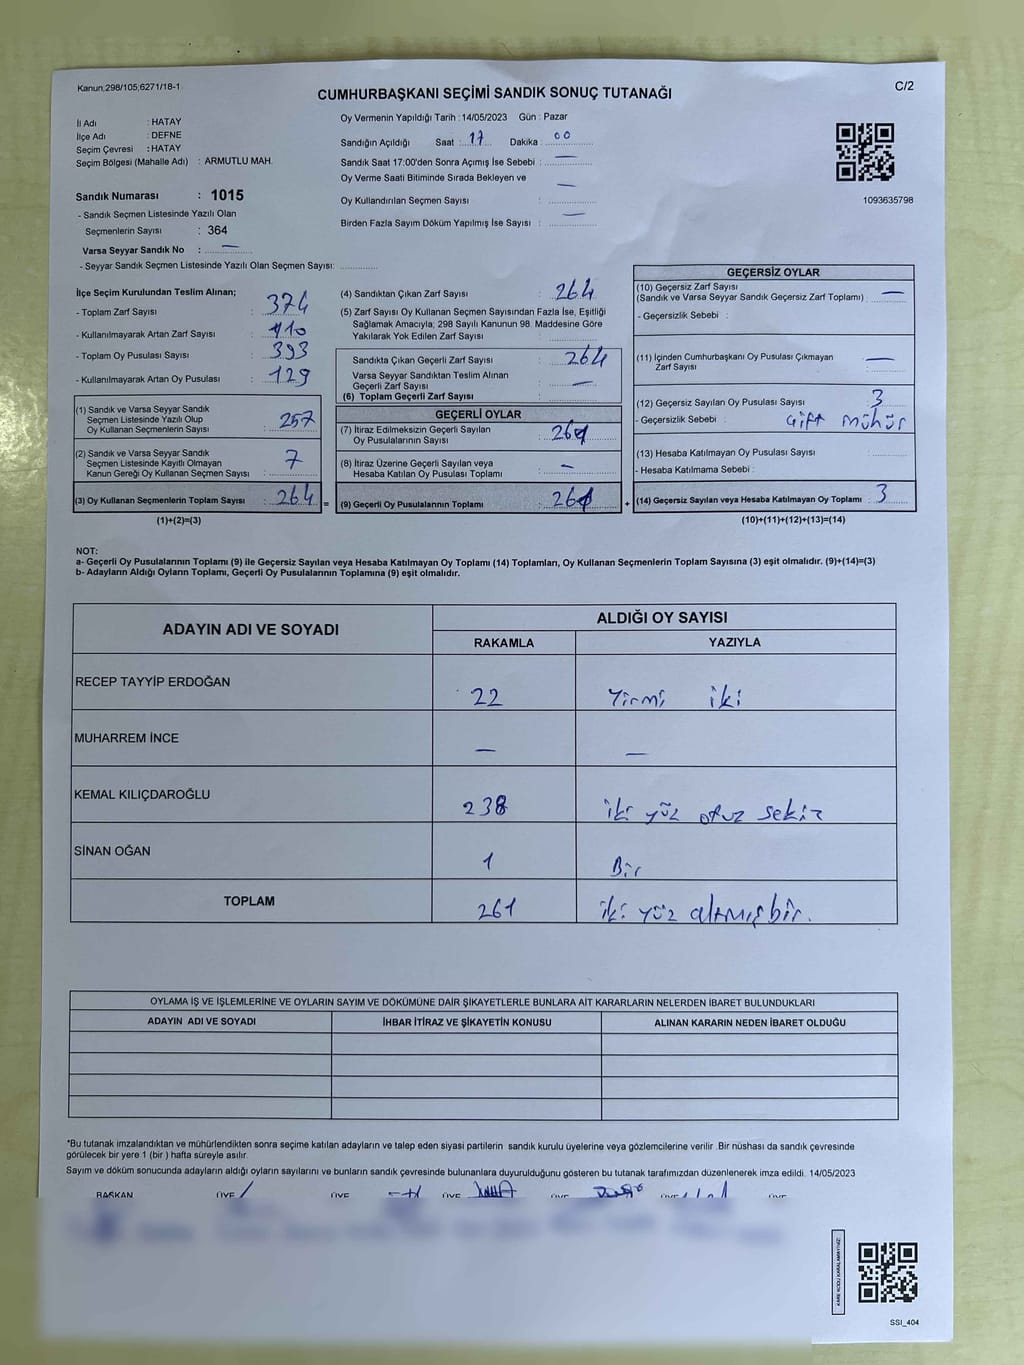 Kanun;298/105;6271/18-1
C/2
CUMHURBAŞKANI SEÇİMİ SANDIK SONUÇ TUTANAĞI
İl Adı : HATAY
İlçe Adı : DEFNE
Seçim Çevresi : HATAY
Seçim Bölgesi (Mahalle Adı) : ARMUTLU MAH.
Sandık Numarası : 1015
- Sandık Seçmen Listesinde Yazılı Olan
Seçmenlerin Sayısı : 364
Varsa Seyyar Sandık No : —
- Seyyar Sandık Seçmen Listesinde Yazılı Olan Seçmen Sayısı:
Oy Vermenin Yapıldığı Tarih : 14/05/2023 Gün : Pazar
Sandığın Açıldığı Saat : 17 Dakika : 00
Sandık Saat 17:00'den Sonra Açımış İse Sebebi : —
Oy Verme Saati Bitiminde Sırada Bekleyen ve
Oy Kullandırılan Seçmen Sayısı : —
Birden Fazla Sayım Döküm Yapılmış İse Sayısı : —
1093635798
İlçe Seçim Kurulundan Teslim Alınan;
- Toplam Zarf Sayısı : 374
- Kullanılmayarak Artan Zarf Sayısı : 110
- Toplam Oy Pusulası Sayısı : 393
- Kullanılmayarak Artan Oy Pusulası : 129
(1) Sandık ve Varsa Seyyar Sandık
Seçmen Listesinde Yazılı Olup
Oy Kullanan Seçmenlerin Sayısı : 257
(2) Sandık ve Varsa Seyyar Sandık
Seçmen Listesinde Kayıtlı Olmayan
Kanun Gereği Oy Kullanan Seçmen Sayısı : 7
(3) Oy Kullanan Seçmenlerin Toplam Sayısı : 264
(1)+(2)=(3)
(4) Sandıktan Çıkan Zarf Sayısı : 264
(5) Zarf Sayısı Oy Kullanan Seçmen Sayısından Fazla İse, Eşitliği
Sağlamak Amacıyla; 298 Sayılı Kanunun 98. Maddesine Göre
Yakılarak Yok Edilen Zarf Sayısı :
Sandıkta Çıkan Geçerli Zarf Sayısı : 264
Varsa Seyyar Sandıktan Teslim Alınan
Geçerli Zarf Sayısı : —
(6) Toplam Geçerli Zarf Sayısı :
GEÇERLİ OYLAR
(7) İtiraz Edilmeksizin Geçerli Sayılan
Oy Pusulalarının Sayısı : 261
(8) İtiraz Üzerine Geçerli Sayılan veya
Hesaba Katılan Oy Pusulası Toplamı : —
= (9) Geçerli Oy Pusulalarının Toplamı : 261 +
GEÇERSİZ OYLAR
(10) Geçersiz Zarf Sayısı
(Sandık ve Varsa Seyyar Sandık Geçersiz Zarf Toplamı) : —
- Geçersizlik Sebebi :
(11) İçinden Cumhurbaşkanı Oy Pusulası Çıkmayan
Zarf Sayısı : —
(12) Geçersiz Sayılan Oy Pusulası Sayısı : 3
- Geçersizlik Sebebi : Çift mühür
(13) Hesaba Katılmayan Oy Pusulası Sayısı :
- Hesaba Katılmama Sebebi :
(14) Geçersiz Sayılan veya Hesaba Katılmayan Oy Toplamı : 3
(10)+(11)+(12)+(13)=(14)
NOT:
a- Geçerli Oy Pusulalarının Toplamı (9) ile Geçersiz Sayılan veya Hesaba Katılmayan Oy Toplamı (14) Toplamları, Oy Kullanan Seçmenlerin Toplam Sayısına (3) eşit olmalıdır. (9)+(14)=(3)
b- Adayların Aldığı Oyların Toplamı, Geçerli Oy Pusulalarının Toplamına (9) eşit olmalıdır.
ADAYIN ADI VE SOYADI ALDIĞI OY SAYISI
RAKAMLA YAZIYLA
RECEP TAYYİP ERDOĞAN 22 Yirmi iki
MUHARREM İNCE — —
KEMAL KILIÇDAROĞLU 238 iki yüz otuz sekiz
SİNAN OĞAN 1 Bir
TOPLAM 261 iki yüz altmışbir.
OYLAMA İŞ VE İŞLEMLERİNE VE OYLARIN SAYIM VE DÖKÜMÜNE DAİR ŞİKAYETLERLE BUNLARA AİT KARARLARIN NELERDEN İBARET BULUNDUKLARI
ADAYIN ADI VE SOYADI İHBAR İTİRAZ VE ŞİKAYETİN KONUSU ALINAN KARARIN NEDEN İBARET OLDUĞU
*Bu tutanak imzalandıktan ve mühürlendikten sonra seçime katılan adayların ve talep eden siyasi partilerin sandık kurulu üyelerine veya gözlemcilerine verilir. Bir nüshası da sandık çevresinde
görülecek bir yere 1 (bir ) hafta süreyle asılır.
Sayım ve döküm sonucunda adayların aldığı oyların sayılarını ve bunların sandık çevresinde bulunanlara duyurulduğunu gösteren bu tutanak tarafımızdan düzenlenerek imza edildi. 14/05/2023
BAŞKAN ÜYE ÜYE ÜYE ÜYE ÜYE ÜYE
KARE KODU KARALAMAYINIZ!
SSI_404